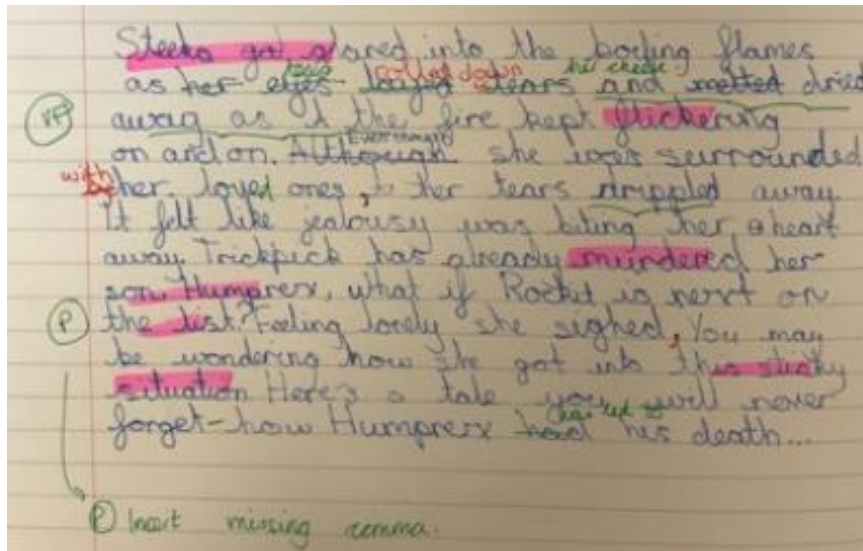 Steeka glared into the boiling flames
rolled down her cheek
as her eyes tears and melted dried
VF away as if the fire kept flickering
Even though
on and on. Although she was surrounded
with by her loved ones, her tears drippled away
It felt like jealousy was biting her heart
away. Trickpick has already murdered her
son, Humprerx, what if Rocket is next on
P the list? Feeling lonely she sighed, You may
be wondering how she got into this sticky
situation Here's a tale you will never
forget-how Humprerx had his death...
P Insert missing comma.